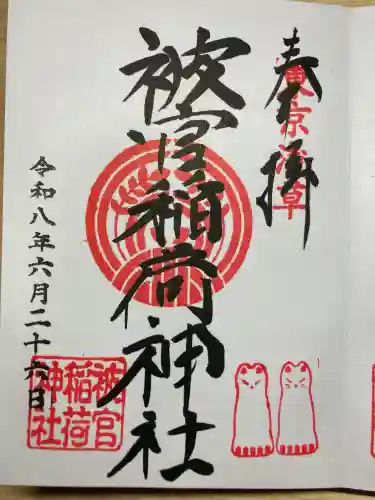 奉拝
東京浅草
被官稲荷神社
令和八年六月二十六日
被官
稲荷
神社